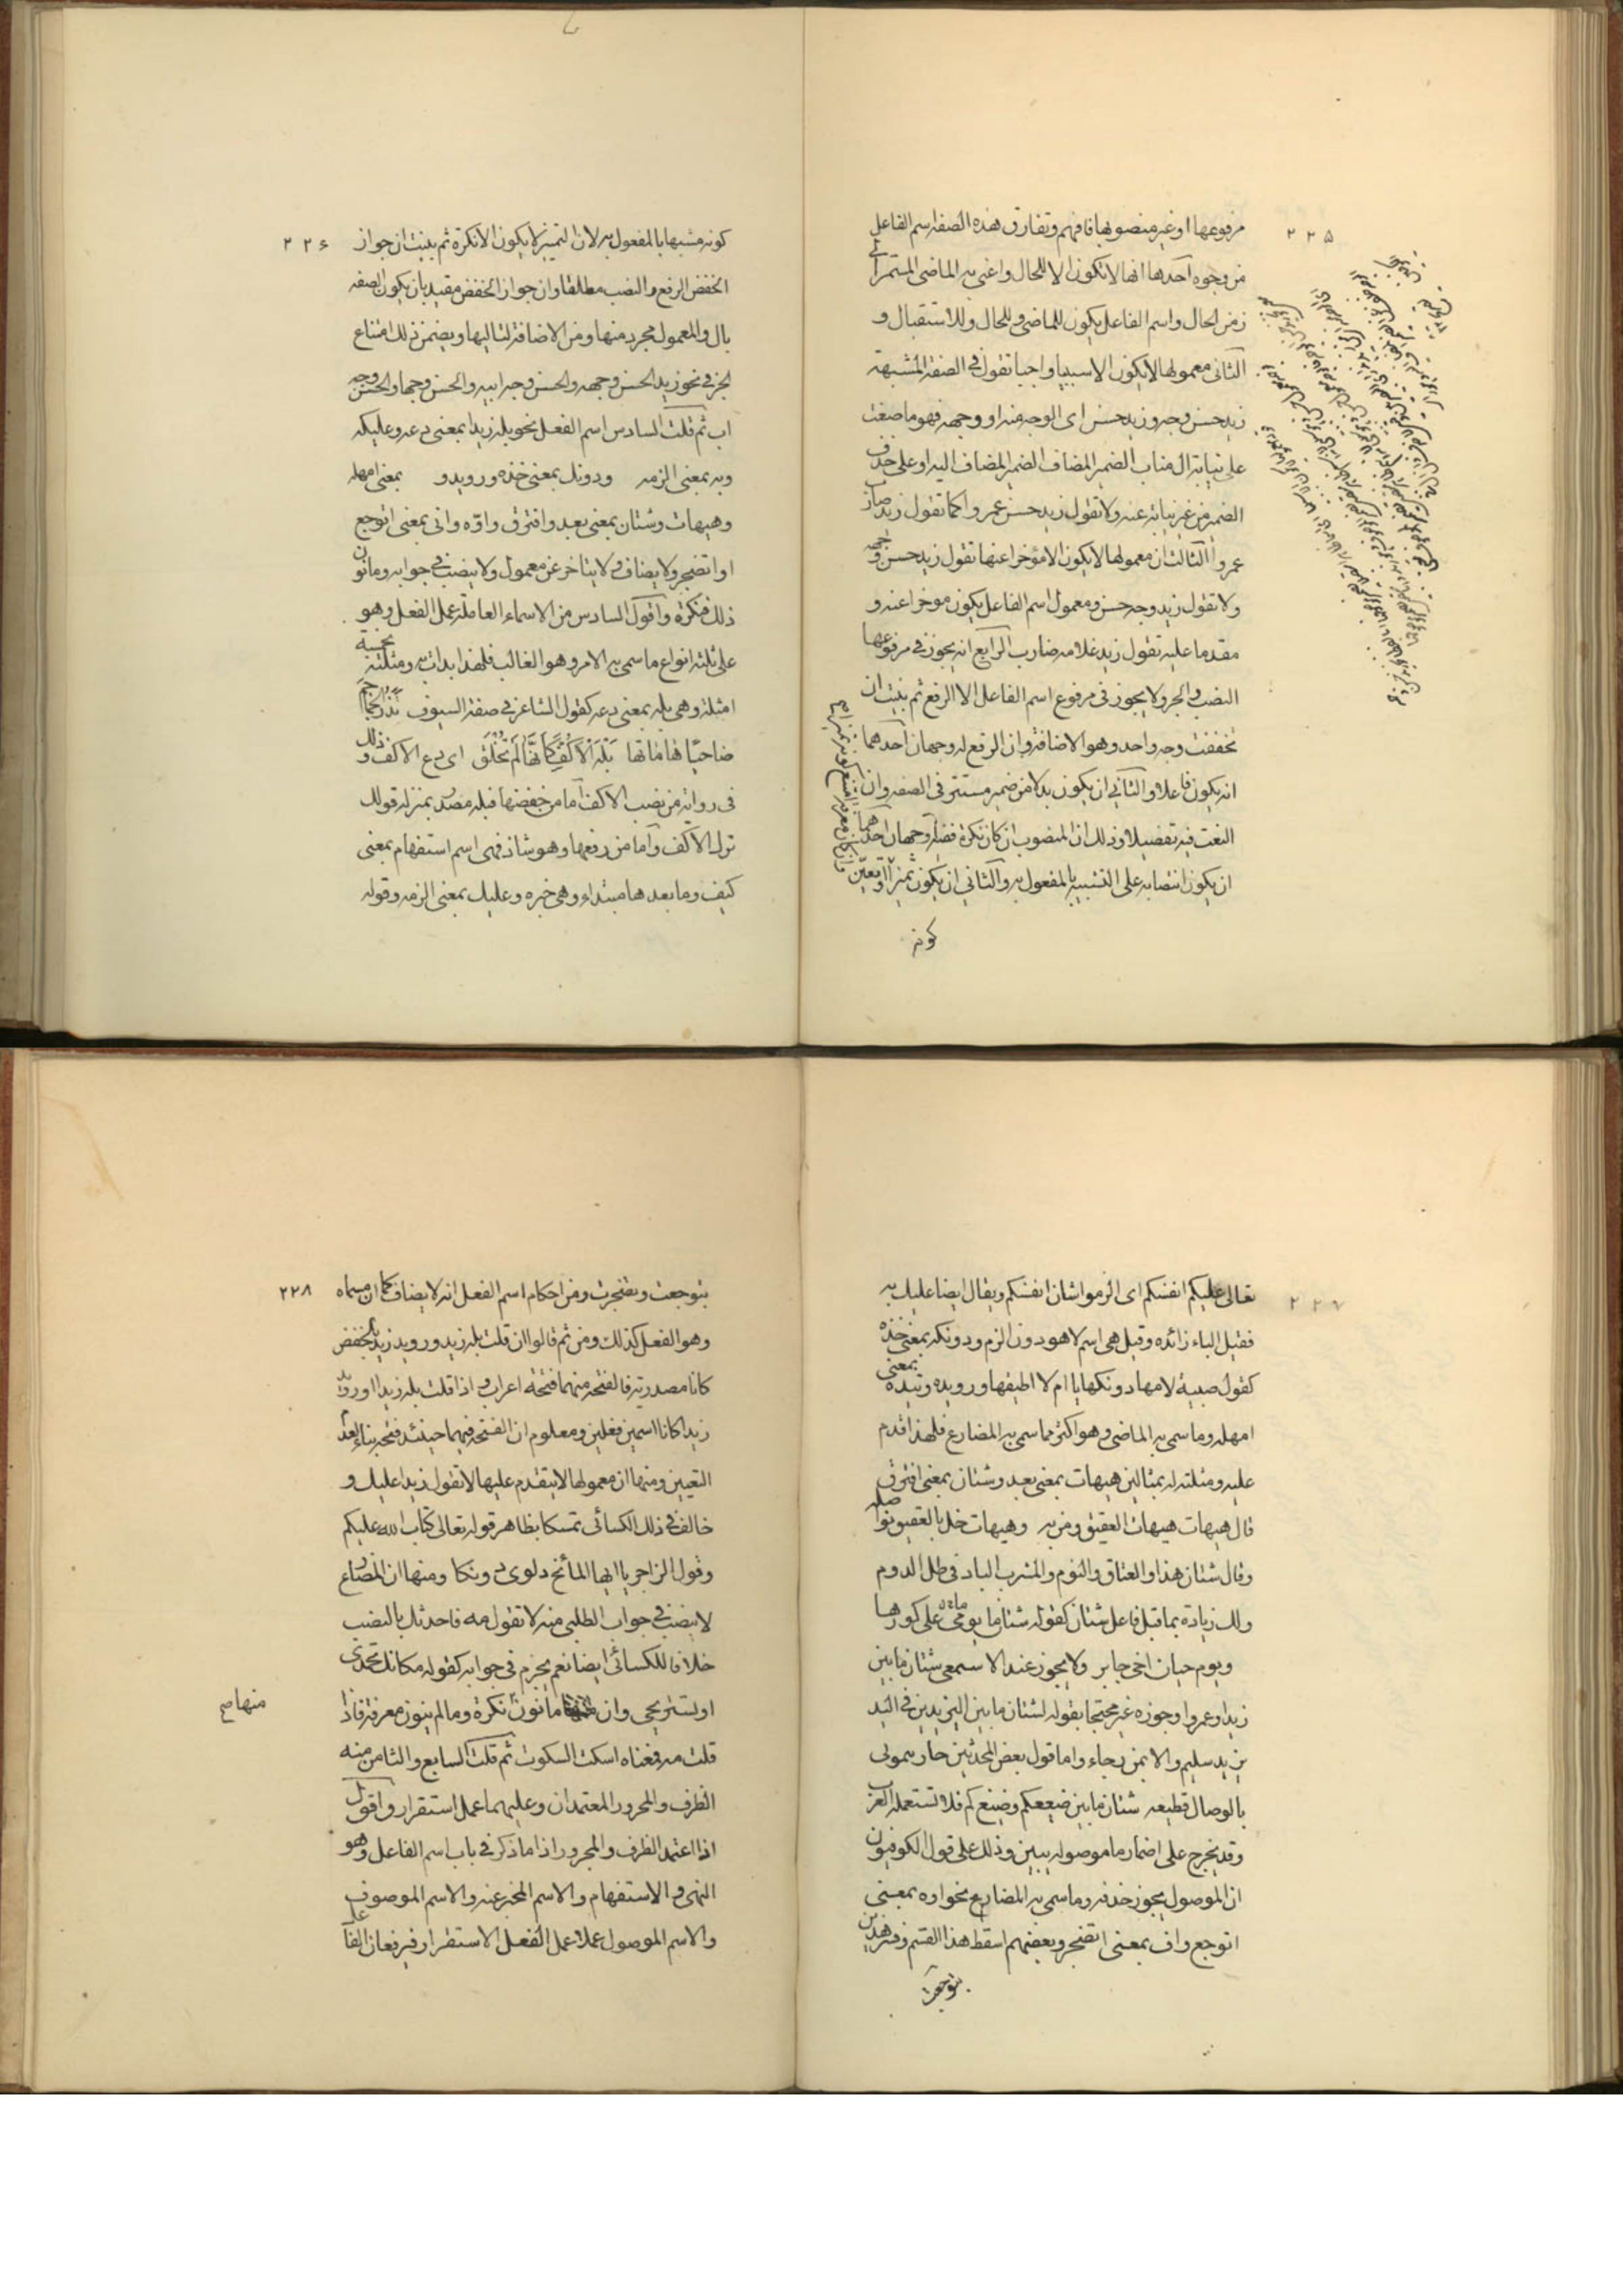 ٢٢٥
مرفوعها او غير منصوبها فافهم وتفارق هذه الصفة اسم الفاعل
من وجوه احدها انها لا تكون الا للحال واعنى به الماضى المستمر الى
زمن الحال واسم الفاعل يكون للماضى وللحال وللاستقبال و
الثانى معمولها لا يكون الا سببيا واجبا تقول فى الصفة المشبهة
زيد حسن وجهه وزيد حسن اى الوجه منه او وجهه فهو ما صنعت
على نيابة ال مناب الضمير المضاف الضمير المضاف اليه او على حذف
الضمير من غير نيابة عنه ولا تقول زيد حسن عمروا كما تقول زيد ضارب
عمروا الثالث ان معمولها لا يكون الا مؤخرا عنها تقول زيد حسن وجهه
ولا تقول زيد وجهه حسن ومعمول اسم الفاعل يكون موخرا عنه و
مقدما عليه تقول زيد غلامه ضارب الرابع انه يجوز فى مرفوعها
النصب والجر ولا يجوز فى مرفوع اسم الفاعل الا الرفع ثم بينت ان
تخفضت وجه واحد وهو الاضافة وان الرفع له وجهان احدهما
انه يكون فاعلا والثانى ان يكون بدلا من ضمير مستتر فى الصفه وان
النعت فيه تفصيلا وذلك ان المنصوب ان كان نكرة فضله وجهان احدهما
ان يكون انتصابه على التشبيه بالمفعول به والثانى ان يكون تميزا وتعين
كونه
٢٢٦
كونه مشبها بالمفعول به لان التميز لا يكون الا نكرة ثم بينت ان جواز
الخفض الرفع والنصب مطلقا وان جواز الخفض مقيد بان يكون الصفه
بال والمعمول مجرد منها ومن الاضافة لتاليها ويضمن ذلك امتناع
الجر فى نحو زيد الحسن وجهه والحسن وجه ابيه والحسن وجها والحسن وجه
اب ثم قلت السادس اسم الفعل نحو بله زيدا بمعنى دعه وعليكه
وبه بمعنى الزمه ودونك بمعنى خذه ورويدو بمعنى امهله
وهيهات وشتان بمعنى بعد وافترق واوّه وانى بمعنى اتوجع
او اتضجر ولا يضاف ولا يتاخر عن معمول ولا ينصب فى جوابه وما نون
ذلك فنكرة واقول السادس من الاسماء العاملة عمل الفعل وهو
على ثلثة انواع ما سمى به الامر وهو الغالب فلهذا بدات به ومثلته بخمسة
امثلة وهى بله بمعنى دعه كقول الشاعر فى صفة السيوف تذر الجماجم
ضاحيًا هاماتها بله الاكف كانها لم تخلق اى دع الاكف وذلك
فى رواية من نصب الاكف اما من خفضها فبله مصدر بمنزلة قولك
ترك الاكف واما من رفعها وهو شاذ فهى اسم استفهام بمعنى
كيف وما بعدها مبتداء وهى خبره وعليك بمعنى الزمه وقوله
٢٢٧
تعالى عليكم انفسكم اى الزموا شان انفسكم ويقال ايضا عليك به
فقيل الباء زائده وقيل هى اسم لا هو دون الزم ودونكه بمعنى خذه
كقول صبية لامها دونكها يا ام لا اطيقها ورويده وتيده بمعنى
امهله وما سمى به الماضى وهو اكثر مما سمى به المضارع فلهذا قدم
عليه ومثلته له بمثالين هيهات بمعنى بعد وشتان بمعنى افترق
قال هيهات هيهات العقيق ومن به وهيهات خل بالعقيق نواصله
وقال شتان هذا والعناق والنوم والمشرب البارد فى ظل الدوم
ولك زيادة بما قبل فاعل شتان كقوله شتان ما يومى على كورها
ويوم حيان اخى جابر ولا يجوز عند الاسمعى شتان ما بين
زيد او عمروا وجوزه غير محتجا بقوله لشتان ما بين اليزيدين فى الند
يزيد سليم والا بن حاء واما قول بعض المحدثين جازيتمونى
بالوصال قطيعه شتان ما بين ضيعكم وضيعكم فلا تستعمله العرب
وقد يخرج على اضمار ما موصوله ببين وذلك على قول الكوفيون
ان الموصول يجوز حذفه وما سمى به المضارع نحو اوه بمعنى
اتوجع واف بمعنى اتضجر وبعضهم اسقط هذا القسم وفسر هذين
بتوجعت
٢٢٨
بتوجعت وتضجرت ومن احكام اسم الفعل انه لا يضاف كما ان مسماه
وهو الفعل كذلك ومن ثم قالوا ان قلت بله زيد ورويد زيد بالخفض
كانا مصدرين فالفتحه منهما فتحة اعراب واذا قلت بله زيدا ورويد
زيدا كانا اسمين فعلين ومعلوم ان الفتحه فيهما حينئذ فتحه بناء لعدم
التعيين ومنها ان معمولها لا يتقدم عليها لا تقول زيدا عليك و
خالف فى ذلك الكسائى تمسكا بظاهر قوله تعالى كتاب الله عليكم
وقول الزاجر يا ايها المائح دلوى دونكا ومنها ان المضارع
لا ينصب فى جواب الطلبى منه لا تقول مه فاحدثك بالنصب
خلافا للكسائى ايضا نعم يجزم فى جوابه كقوله مكانك تحمدى
او تستريحى وان ما نون نكرة وما لم ينون معرفة فاذا
منها صح
قلت مه فمعناه اسكت السكوت ثم قلت السابع والثامن منه
الظرف والمجرور المعتمدان وعليهما عمل استقرار واقول
اذا اعتمد الظرف والمجرور اذا ما ذكر فى باب اسم الفاعل وهو
النهى والاستفهام والاسم المخبر عنه والاسم الموصوف
والاسم الموصول عملا عمل الفعل الاستقرار فيرفعان الفاعل